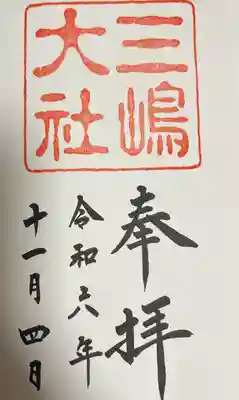 三嶋
大社
奉拝
令和六年
十一月四日